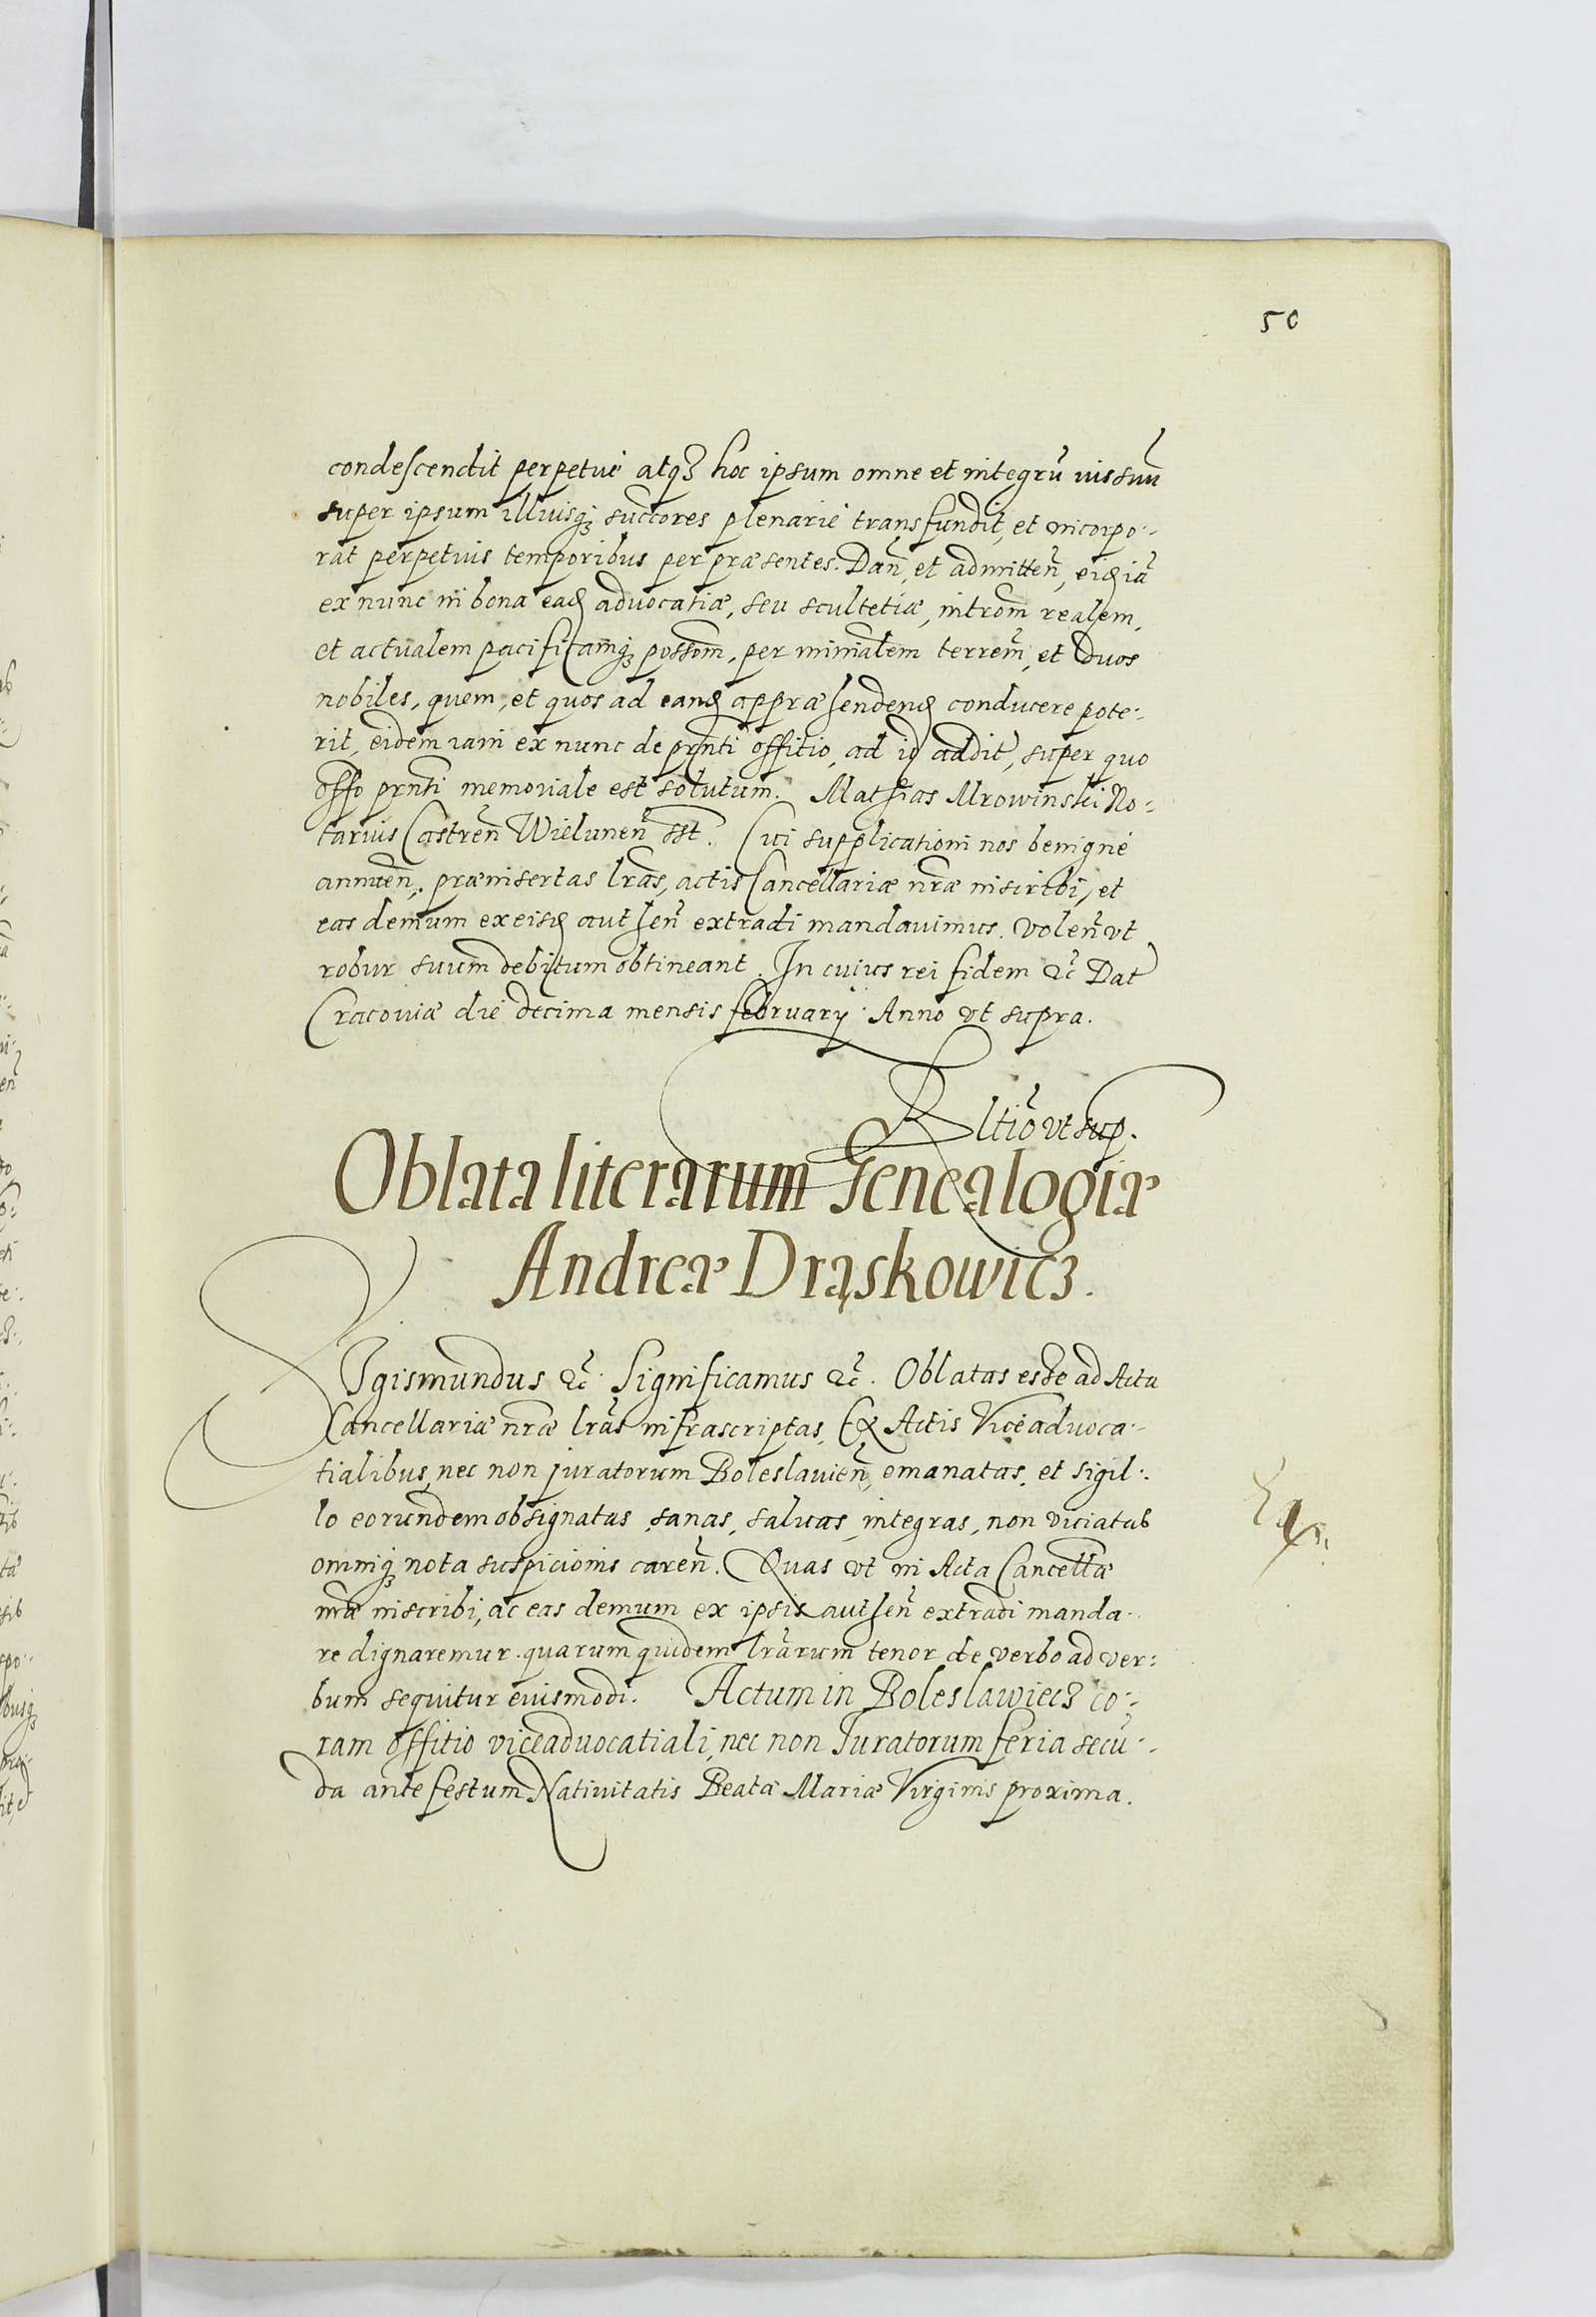 50
condescendit perpetue atq₃ hoc ipsum omne et integrũ ius suũ
super ipsum illiusq₃ succores plenarie transfundit, et incorpo-
rat perpetuis temporibus per præsentes. Dañ, et admitteñ, eidiã
ex nunc in bona ead advocatiæ, seu scultetiæ, introm̃ realem,
et actualem pacificamq₃ possom̃, per minialem terrem̃, et duos
nobiles, quem, et quos ad eand appræhendend conducere pote-
rit, eidem iam ex nunc de prnti offitio, ad id addit, super quo
offo prnti memoriale est solutum. Mathias Mrowinski No-
tarius Castreñ Wieluneñ sst. Cui supplicationi nos benigne
annueñ, præinsertas lras, actis Cancellariæ nræ inscribi, et
eas demum ex eisd autheñ extradi mandavimus. Voleñ vt
robur suum debitum obtineant. In cuius rei fidem &c Dat
Cracoviæ die decima mensis february Anno vt supra.
Rltiõ vt sup.
Oblata literarum Genealogiæ
Andreæ Drąskowicz.
Sigismundus &c Significamus &c. Oblatas esse ad Acta
Cancellariæ nræ lras infrascriptas, Ex Actis Viceadvoca-
tialibus, nec non juratorum Boleslavieñ, emanatas, et sigil-
lo eorundem obsignatas, sanas, salvas, integras, non viciatas
omniq₃ nota suspicionis careñ. Quas vt in Acta Cancellæ
nræ inscribi, ac eas demum ex ipsis autheñ extradi manda-
re dignaremur. quarum quidem lrarum tenor de verbo ad ver-
bum sequitur eiusmodi. Actum in Boleslawiecz co-
ram offitio viceadvocatiali, nec non Juratorum feria secũ-
da ante festum Nativitatis Beatæ Mariæ Virginis proxima.